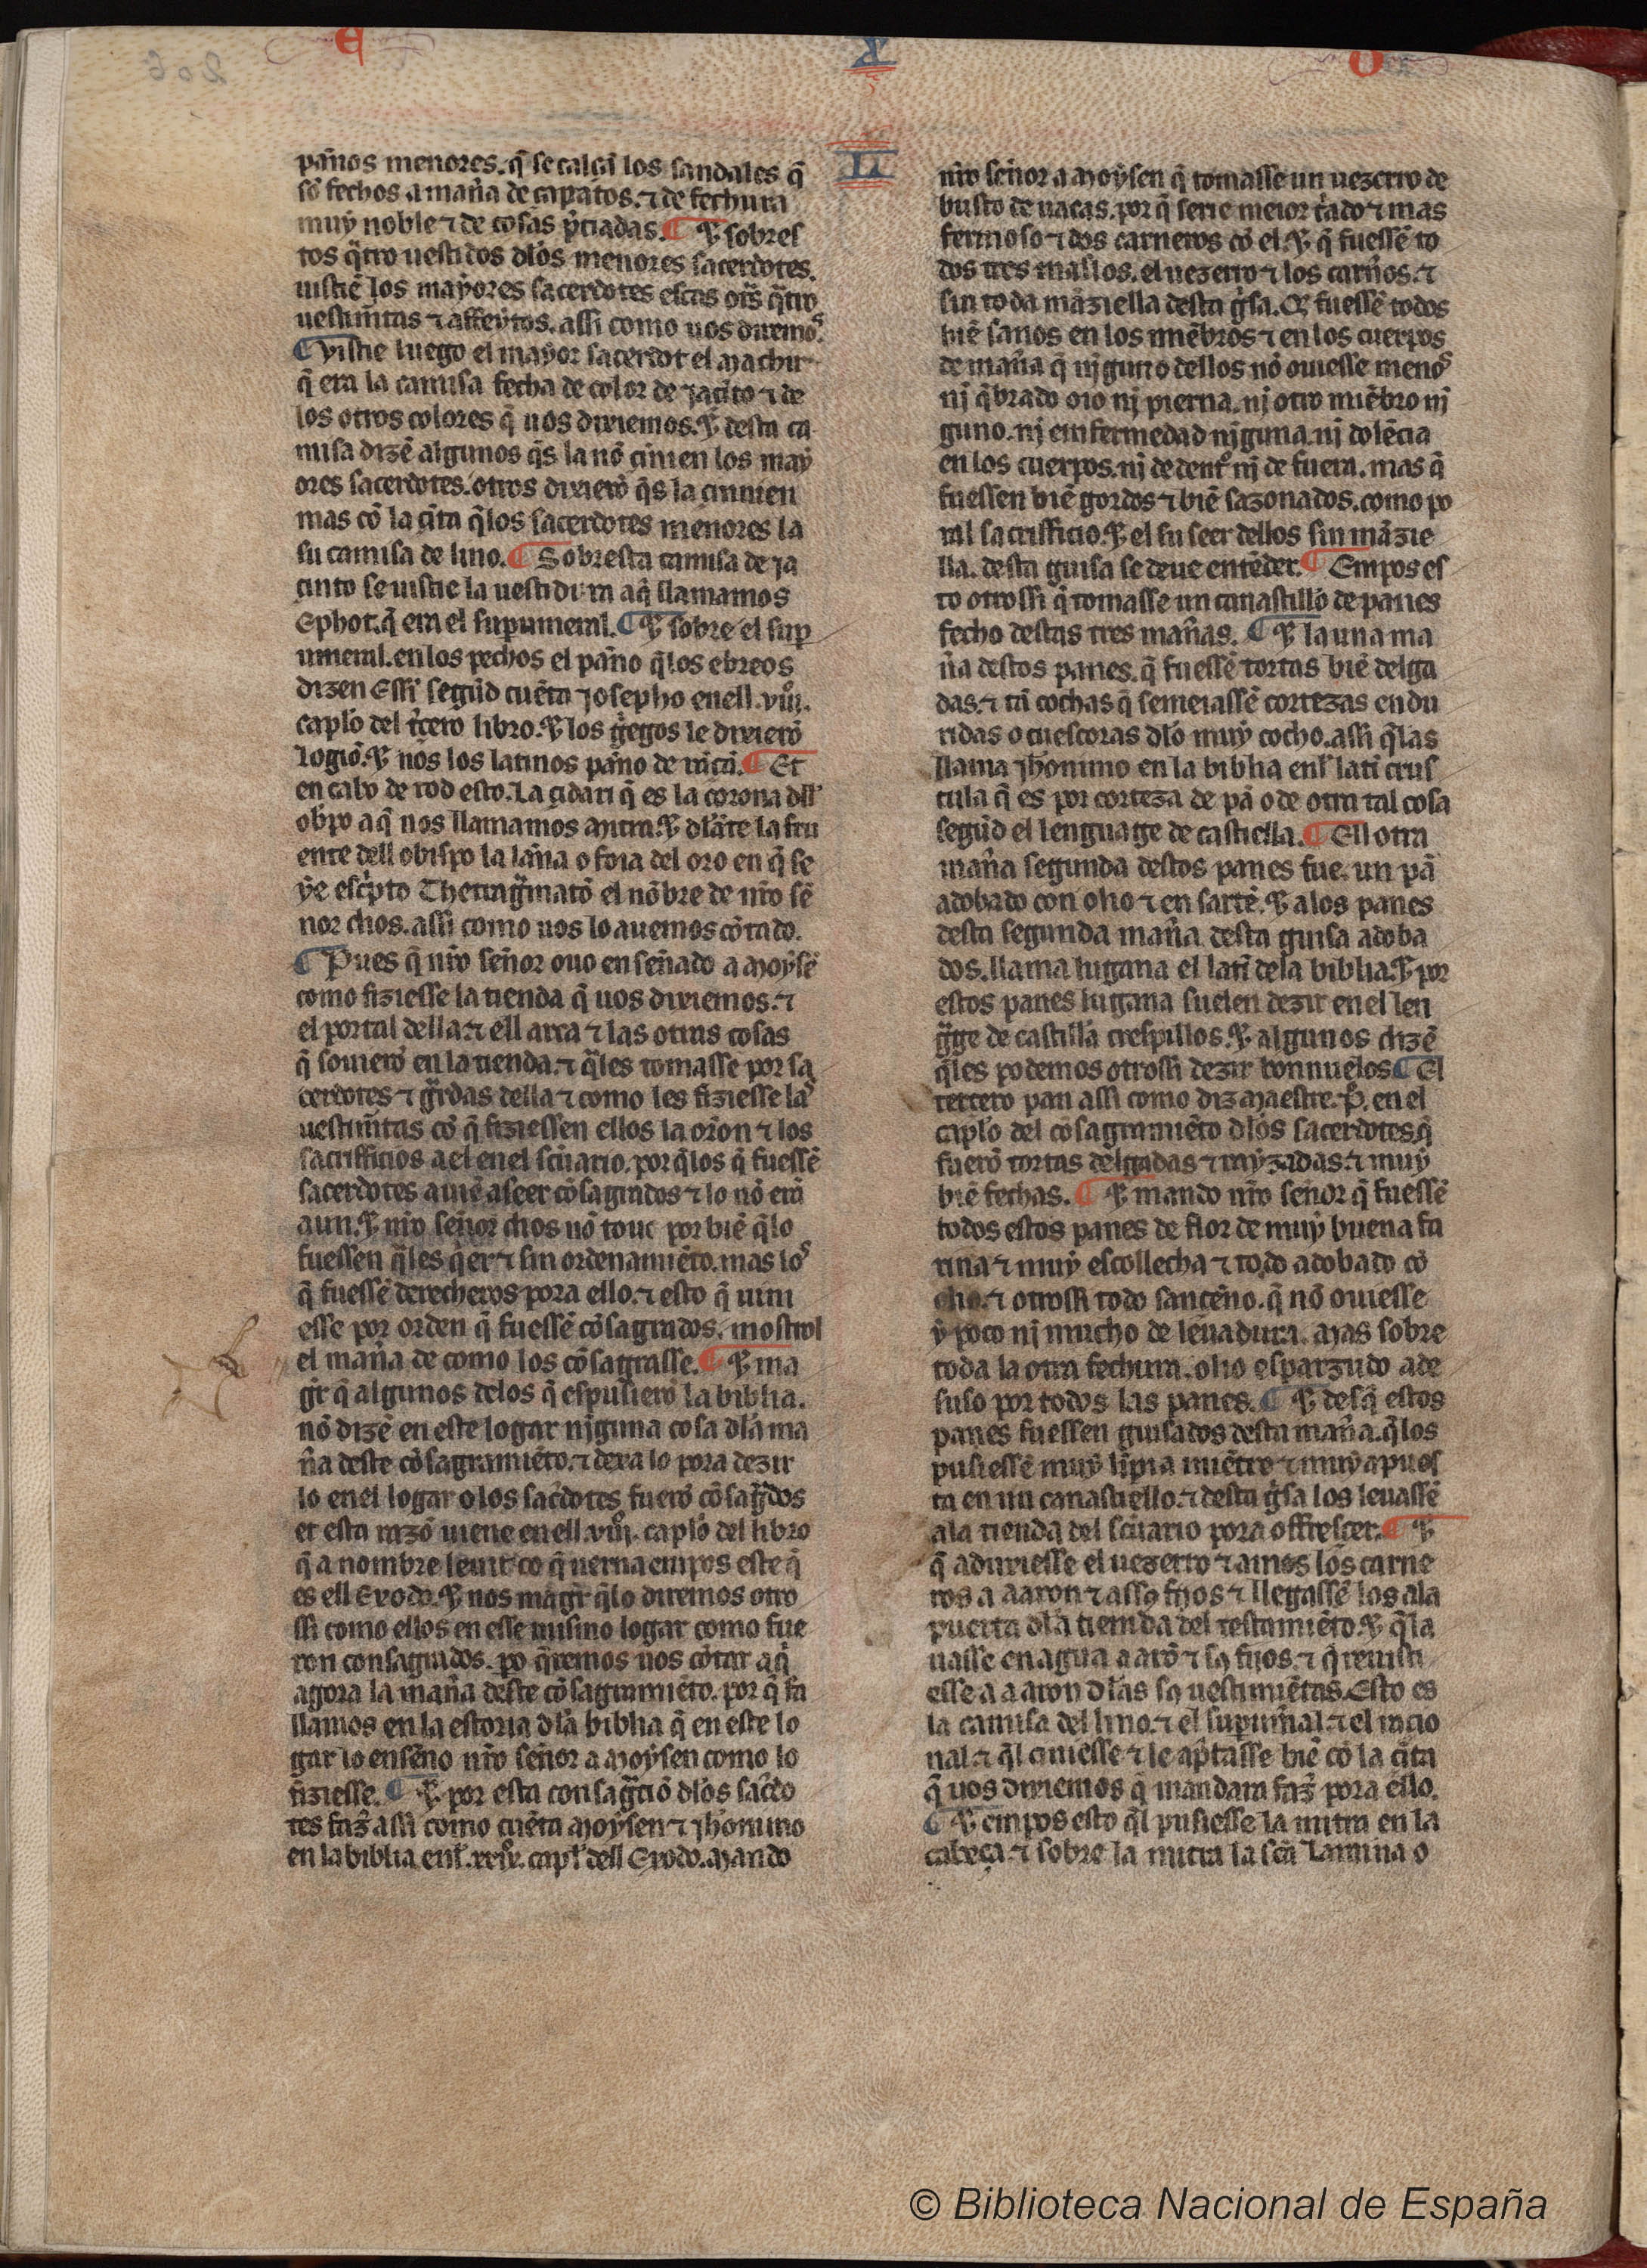 E X O
L
pãnos menores. q̃ se calçã los sandales q̃
sõ fechos a mañа de çapatos. ⁊ de fechura
muẏ noble ⁊ de cosas p̃ciadas. ¶ E sobres
tos q̃tro uestidos dlos menores sacerdotes.
uistiẽ los maẏores sacerdotes estos otr̃s q̃tro
uestim̃tas ⁊ affeẏtos. assi como uos diremos.
¶ Vistie luego el maẏor sacerdot el machir
q̃ era la camisa fecha de color de jacĩto ⁊ de
los otros colores q̃ uos dixiemos. E desta ca
misa dizẽ algunos q̃s la nõ cinien los maẏ
ores sacerdotes. otros dixierõ q̃s la cinnien
mas cõ la cĩta q̃ los sacerdotes menores la
su camisa de lino. ¶ Sobresta camisa de ja
cinto se uistie la uestidura aq̃ llamamos
Ephot. q̃ era el supumeral. ¶ E sobre el sup
umeral. en los pechos el paño q̃ los ebreos
dizen Essi segũd cuẽta josepho enell .viij.
caplo del t̃cero libro. E los g̃egos le dixierõ
logiõ. E nos los latinos paño de razõ. ¶ Et
en cabo de tod esto. La cidari q̃ es la corona dell
obpo aq̃ nos llamamos mitra. E dlãte la fru
ente dell obispo la lãna o foia del oro en q̃ se
ẏe esc̃pto Thetrag̃matõ el nõbre de nr̃o se
nor dios. assi como uos lo auemos cõtado.
¶ Pues q̃ nr̃o señor ouo enseñado a moẏsẽ
como fiziesse la tienda q̃ uos dixiemos. ⁊
el portal della. ⁊ ell arca ⁊ las otras cosas
q̃ souierõ en la tienda. ⁊ q̃les tomasse por sa
cerdotes ⁊ g̃rdas della ⁊ como les fiziesse las
uestim̃tas cõ q̃ fiziessen ellos la oriõn ⁊ los
sacrifficios a el enel sc̃uario. por q̃los q̃ fuessẽ
sacerdotes auiẽ a seer cõsagrados ⁊ lo nõ erã
aun. E nr̃o señor dios nõ touo por biẽ q̃ lo
fuessen q̃les q̃er ⁊ sin ordenamiẽto. mas los
q̃ fuessẽ derecheros pora ello. ⁊ esto q̃ uini
esse por orden q̃ fuessẽ cõsagrados. mostrol
el mañа de como los cõsagrasse. ¶ E ma
gr̃ q̃ algunos delos q̃ espusierõ la biblia.
nõ dizẽ en este logar nj̃guna cosa dla ma
ñа deste cõsagramiẽto. ⁊ dexa lo pora dezir
lo enel logar o los sac̃dotes fuerõ cõsag̃dos
et esta razõ uiene enell .viij. caplo del libro
q̃ a nombre leuitico q̃ uerna empos este q̃
es ell Exodo. E nos magr̃ q̃lo diremos otro
ssi como ellos en esse mismo logar como fue
ron consagrados. po q̃remos uos cõtar aq̃
agora la mañа deste cõsagramiẽto. por q̃ fa
llamos en la estoria dla biblia q̃ en este lo
gar lo enseño nr̃o señor a moẏsen como lo
fiziesse. ¶ E por esta consag̃ciõ dlos sac̃do
tes faz̃ assi como cuẽta moẏsen ⁊ jheronimo
en la biblia enl .xxix. capl dell Exodo. Mando
nr̃o señor a moẏsen q̃ tomasse un uezerro de
busto de uacas. por q̃ serie meior c̃ado ⁊ mas
fermoso ⁊ dos carneros cõ el. E q̃ fuessẽ to
dos tres maslos. el uezerro ⁊ los carños. ⁊
sin toda mãziella desta g̃sa. Q̃ fuessẽ todos
biẽ sanos en los miẽbros ⁊ en los cuerpos
de mañа q̃ nj̃guno dellos nõ ouiesse menos
nj q̃brado oio nj pierna. nj otro miẽbro nj
guno. nj emfermedad nj̃guna. nj dolẽcia
en los cuerpos. nj de dent̃ nj de fuera. mas q̃
fuessen biẽ gordos ⁊ biẽ sazonados. como po
ral sacrifficio. E el su seer dellos sin mãzie
lla. desta guisa se deue entẽder. ¶ Empos es
to otrossi q̃ tomasse un canastillo de panes
fecho destas tres mañas. ¶ E la una ma
ñа destos panes. q̃ fuessẽ tortas biẽ delga
das. ⁊ tã cochas q̃ semeiassẽ cortezas endu
ridas o cuescoras dlo muẏ cocho. assi q̃ las
llama jheronimo en la biblia enl latĩ crus
tula q̃ es por corteza de pã o de otra tal cosa
segũd el lenguage de castiella. ¶ Ell otra
mañа segunda destos panes fue. un pã
adobado con olio ⁊ en sartẽ. E a los panes
desta segunda mañа desta guisa adoba
dos. llama lagana el latĩ dela biblia. E por
estos panes lagana suelen dezir en el len
g̃ge de castilla crespillos. E algunos dizẽ
q̃les podemos otrossi dezir bonnuelos ¶ El
tercero pan assi como diz maestre .P̃. en el
caplo del cõsagramiẽto dlos sacerdotes. q̃
fuerõ tortas delgadas ⁊ raẏzadas. ⁊ muẏ
biẽ fechas. ¶ E mando nr̃o señor q̃ fuessẽ
todos estos panes de flor de muẏ buena fa
rina ⁊ muẏ escollecha ⁊ todo adobado cõ
olio. ⁊ otrossi todo sanceño. q̃ nõ ouiesse
ẏ poco nj mucho de leuadura. Mas sobre
toda la otra fechura. olio esparzudo ade
suso por todos las panes. ¶ E desq̃ estos
panes fuessen guisados desta mañа. q̃ los
pusiessẽ muẏ lĩpia miẽtre ⁊ muẏ apues
ta en un canastiello. ⁊ desta g̃sa los leuassẽ
ala tienda del sc̃uario pora offrescer. ¶ E
q̃ aduxiesse el uezerro ⁊ amos los carne
ros a aaron ⁊ assos fijos ⁊ llegassẽ los ala
puerta dla tienda del testamiẽto. E q̃ la
uasse en agua a aarõ ⁊ sos fijos. ⁊ q̃ reuisti
esse a aaron dlas sos uestimiẽtas. Esto es
la camisa del lino. ⁊ el supum̃al. ⁊ el racio
nal. ⁊ q̃l ciniesse ⁊ le ap̃tasse biẽ cõ la cĩta
q̃ uos dixiemos q̃ mandara faz̃ pora ello.
¶ E empos esto q̃l pusiesse la mitra en la
cabeça. ⁊ sobre la mitra la sc̃a lamina o
© Biblioteca Nacional de España